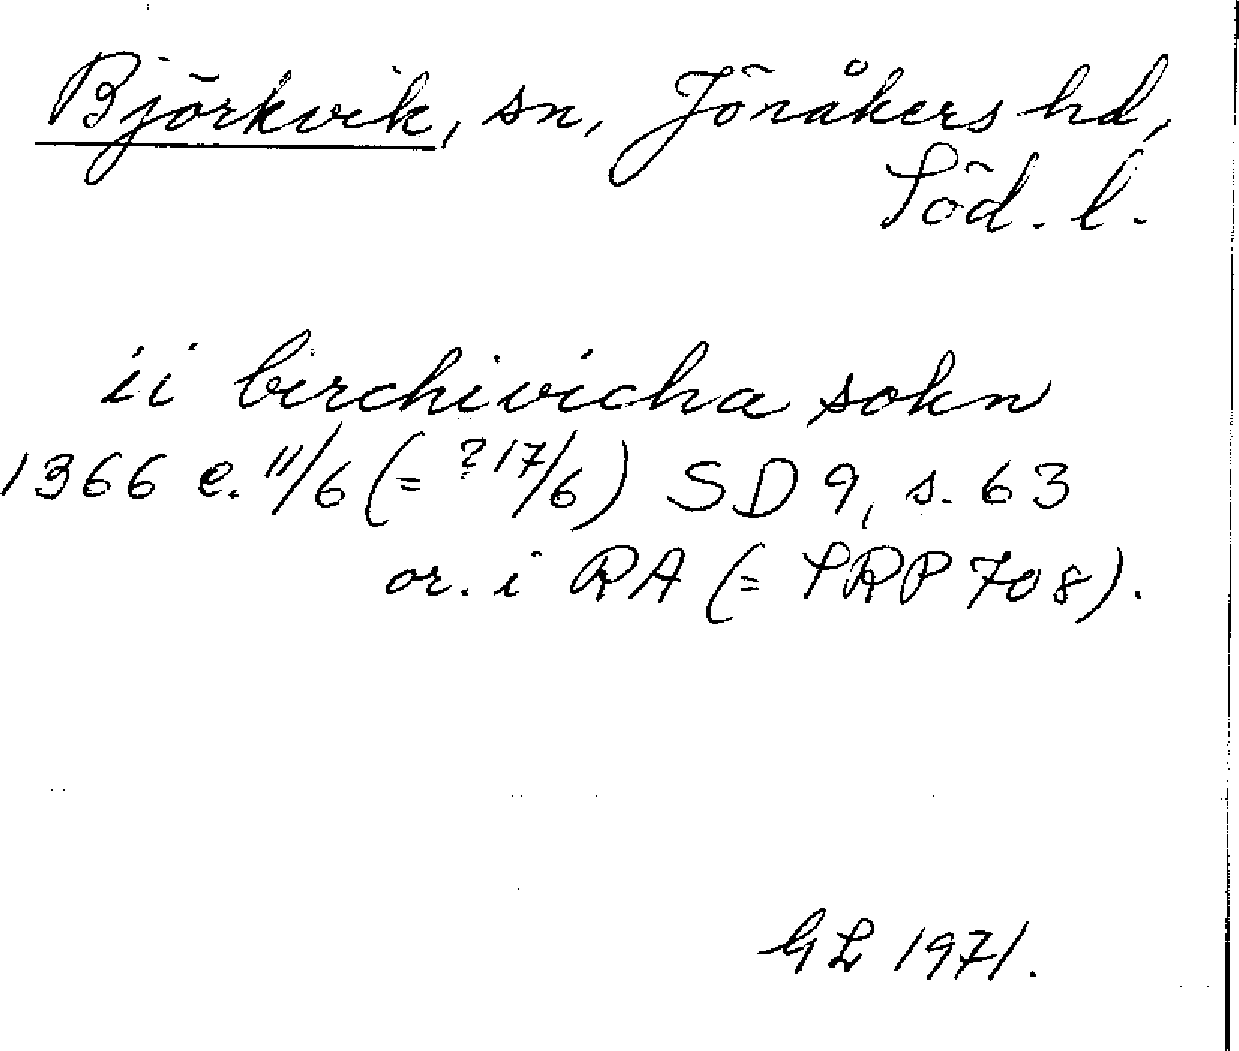 Björkvik, sn, Jönåkers hd,
Söd. l.
ii birchivicha sokn
1366 e. 11/6 (= ? 17/6) SD 9, s. 63
or. i RA (= SRP 708).
GL 1971.